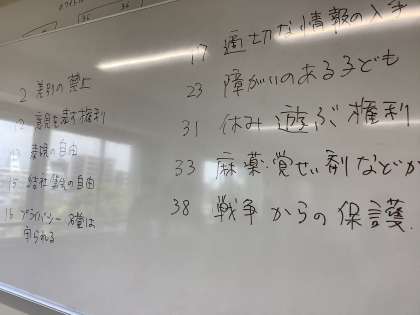 2 差別の禁止
12 意見を表す権利
13 表現の自由
15 結社・集会の自由
16 プライバシー・名誉は
守られる
17 適切な情報の入手
23 障がいのある子ども
31 休み 遊ぶ 権利
33 麻薬・覚せい剤などか
38 戦争 からの 保護.